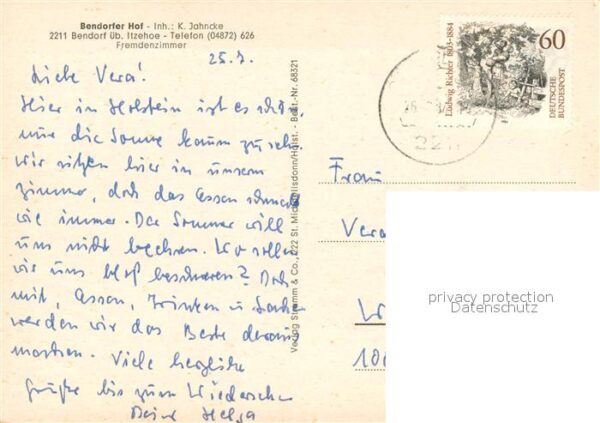 Bendorfer Hof - Inh.: K. Jahncke
2211 Bendorf üb. Itzehoe - Telefon (04872) 626
Fremdenzimmer
25.7.
Liebe Vera!
Hier in Holstein ist es schön
nur die Sonne kaum zu sehn
wir sitzen hier in unserm
Zimmer, doch das Essen schmeckt
wie immer. Der Sommer will
uns nicht
Wo sollen
wir uns bloß beschweren? Doch
mit, Essen, Trinken u.
werden wir das Beste daraus
machen. Viele herzliche
Grüße bis zum Wiedersehen
Deine Helga
Verlag Stramm & Co., 222 St. Michaelisdonn/Holst. - Best.-Nr. 68321
Ludwig Richter 1803-1884
60
DEUTSCHE
BUNDESPOST
Frau
Vera
W
100
privacy protection
Datenschutz